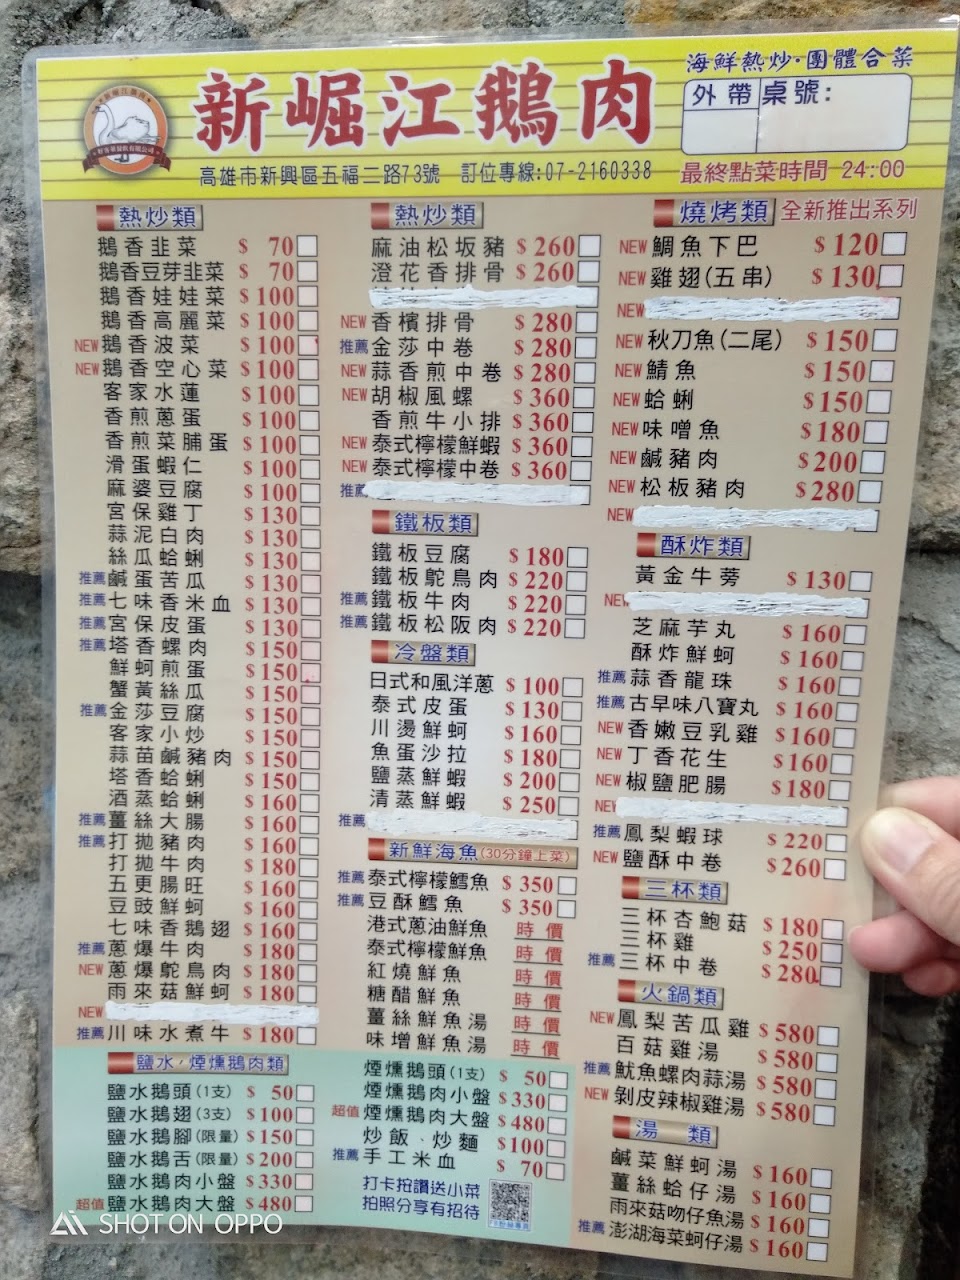 新崛江鵝肉
海鮮熱炒·團體合菜
外帶 桌號:
高雄市新興區五福二路73號 訂位專線:07-2160338
最終點菜時間 24:00
熱炒類
鵝香韭菜 $ 70
鵝香豆芽韭菜 $ 70
鵝香娃娃菜 $ 100
鵝香高麗菜 $ 100
NEW 鵝香波菜 $ 100
NEW 鵝香空心菜 $ 100
客家水蓮 $ 100
香煎蔥蛋 $ 100
香煎菜脯蛋 $ 100
滑蛋蝦仁 $ 100
麻婆豆腐 $ 100
宮保雞丁 $ 130
蒜泥白肉 $ 130
絲瓜蛤蜊 $ 130
推薦 鹹蛋苦瓜 $ 130
推薦 七味香米血 $ 130
推薦 宮保皮蛋 $ 130
推薦 塔香螺肉 $ 150
鮮蚵煎蛋 $ 150
蟹黃絲瓜 $ 150
推薦 金莎豆腐 $ 150
客家小炒 $ 150
蒜苗鹹豬肉 $ 150
塔香蛤蜊 $ 150
酒蒸蛤蜊 $ 160
推薦 薑絲大腸 $ 160
推薦 打拋豬肉 $ 160
打拋牛肉 $ 180
五更腸旺 $ 160
豆豉鮮蚵 $ 160
七味香鵝翅 $ 160
推薦 蔥爆牛肉 $ 180
NEW 蔥爆鴕鳥肉 $ 180
雨來菇鮮蚵 $ 180
NEW
推薦 川味水煮牛 $ 180
鹽水,煙燻鵝肉類
鹽水鵝頭(1支) $ 50
鹽水鵝翅(3支) $ 100
鹽水鵝腳(限量) $ 150
鹽水鵝舌(限量) $ 200
鹽水鵝肉小盤 $ 330
超值 鹽水鵝肉大盤 $ 480
熱炒類
麻油松坂豬 $ 260
澄花香排骨 $ 260
NEW 香檳排骨 $ 280
推薦 金莎中卷 $ 280
NEW 蒜香煎中卷 $ 280
NEW 胡椒風螺 $ 360
香煎牛小排 $ 360
NEW 泰式檸檬鮮蝦 $ 360
NEW 泰式檸檬中卷 $ 360
推薦
鐵板類
鐵板豆腐 $ 180
鐵板鴕鳥肉 $ 220
推薦 鐵板牛肉 $ 220
推薦 鐵板松阪肉 $ 220
冷盤類
日式和風洋蔥 $ 100
泰式皮蛋 $ 130
川燙鮮蚵 $ 160
魚蛋沙拉 $ 180
鹽蒸鮮蝦 $ 200
清蒸鮮蝦 $ 250
推薦
新鮮海魚(30分鐘上菜)
推薦 泰式檸檬鱈魚 $ 350
推薦 豆酥鱈魚 $ 350
港式蔥油鮮魚 時價
泰式檸檬鮮魚 時價
紅燒鮮魚 時價
糖醋鮮魚 時價
薑絲鮮魚湯 時價
味增鮮魚湯 時價
煙燻鵝頭(1支) $ 50
煙燻鵝肉小盤 $ 330
超值 煙燻鵝肉大盤 $ 480
炒飯、炒麵 $ 100
推薦 手工米血 $ 70
打卡按讚送小菜
拍照分享有招待
燒烤類 全新推出系列
NEW 鯛魚下巴 $ 120
NEW 雞翅(五串) $ 130
NEW
NEW 秋刀魚(二尾) $ 150
NEW 鯖魚 $ 150
NEW 蛤蜊 $ 150
NEW 味噌魚 $ 180
NEW 鹹豬肉 $ 200
NEW 松板豬肉 $ 280
NEW
酥炸類
黃金牛蒡 $ 130
NEW
芝麻芋丸 $ 160
酥炸鮮蚵 $ 160
推薦 蒜香龍珠 $ 160
推薦 古早味八寶丸 $ 160
NEW 香嫩豆乳雞 $ 160
NEW 丁香花生 $ 160
NEW 椒鹽肥腸 $ 180
NEW
推薦 鳳梨蝦球 $ 220
NEW 鹽酥中卷 $ 260
三杯類
三杯杏鮑菇 $ 180
三杯雞 $ 250
推薦 三杯中卷 $ 280
火鍋類
NEW 鳳梨苦瓜雞 $ 580
百菇雞湯 $ 580
推薦 魷魚螺肉蒜湯 $ 580
NEW 剝皮辣椒雞湯 $ 580
湯類
鹹菜鮮蚵湯 $ 160
薑絲蛤仔湯 $ 160
雨來菇吻仔魚湯 $ 160
推薦 澎湖海菜蚵仔湯 $ 160
SHOT ON OPPO